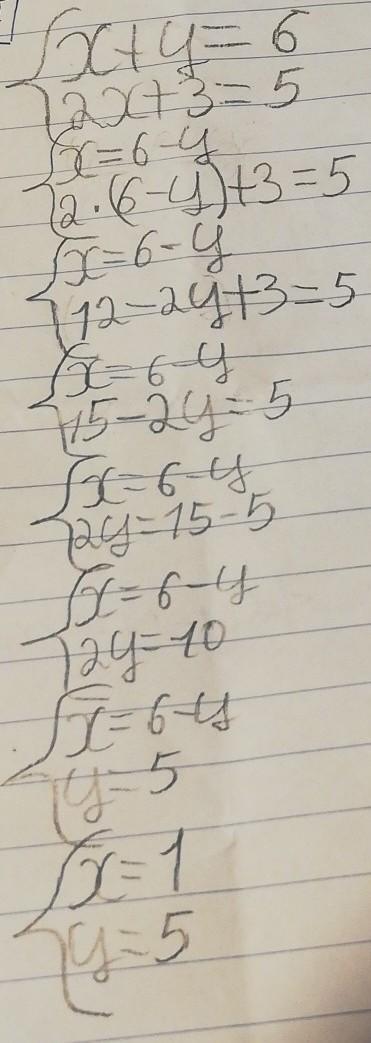 x+y=6
2x+3=5
x=6-y
2·(6-y)+3=5
x=6-y
12-2y+3=5
x=6-y
15-2y=5
x=6-y
2y=15-5
x=6-y
2y=10
x=6-y
y=5
x=1
y=5